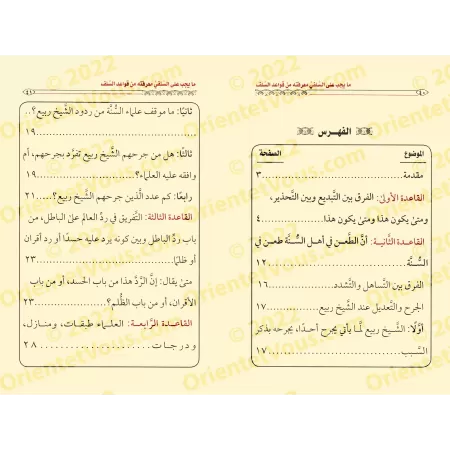 ما يجب على السلفي معرفته من قواعد السلف
٤٠
الفهرس
الموضوع الصفحة
مقدمة ................ ٣
القاعدة الأولىٰ: الفرق بين التبديع وبين التحذير،
ومتىٰ يكون هذا ومتىٰ يكون هذا........... ٤
القاعدة الثَّانية: أنَّ الطَّعن في أهل السُّنَّة طعن في
السُّنَّة ................ ١٢
الفرق بين التَّساهل والتَّشدد ........... ١٦
الجرح والتَّعديل عند الشَّيخ ربيع ........ ١٧
أوَّلًا: الشَّيخ ربيع لمَّا يأتي يجرح أحدًا، يجرحه بذكر
السَّبب ................ ١٧
ما يجب على السلفي معرفته من قواعد السلف
٤١
ثانيًا: ما موقف علماء السُّنَّة من ردود الشَّيخ ربيع؟..
................ ١٩
ثالثًا: هل من جرحهم الشَّيخ ربيع تفرَّد بجرحهم، أم
وافقه عليه العلماء؟................ ١٩
رابعًا: كم عدد الَّذين جرحهم الشَّيخ ربيع؟..... ٢١
القاعدة الثالثة: التَّفريق في ردِّ العالم علىٰ الباطل، من
باب ردِّ الباطل وبين كونه يرد عليه حسدًا أو رد أقران
أو ظلمًا................ ٢٣
متىٰ يقال: إنَّ الرَّدَّ هذا من باب الحسد، أو من باب
الأقران، أو من باب الظُّلم؟............ ٢٣
القاعدة الرَّابعة: العلماء طبقات، ومنازل،
ودرجات................ ٢٨
© 2022
OrientetVous.com